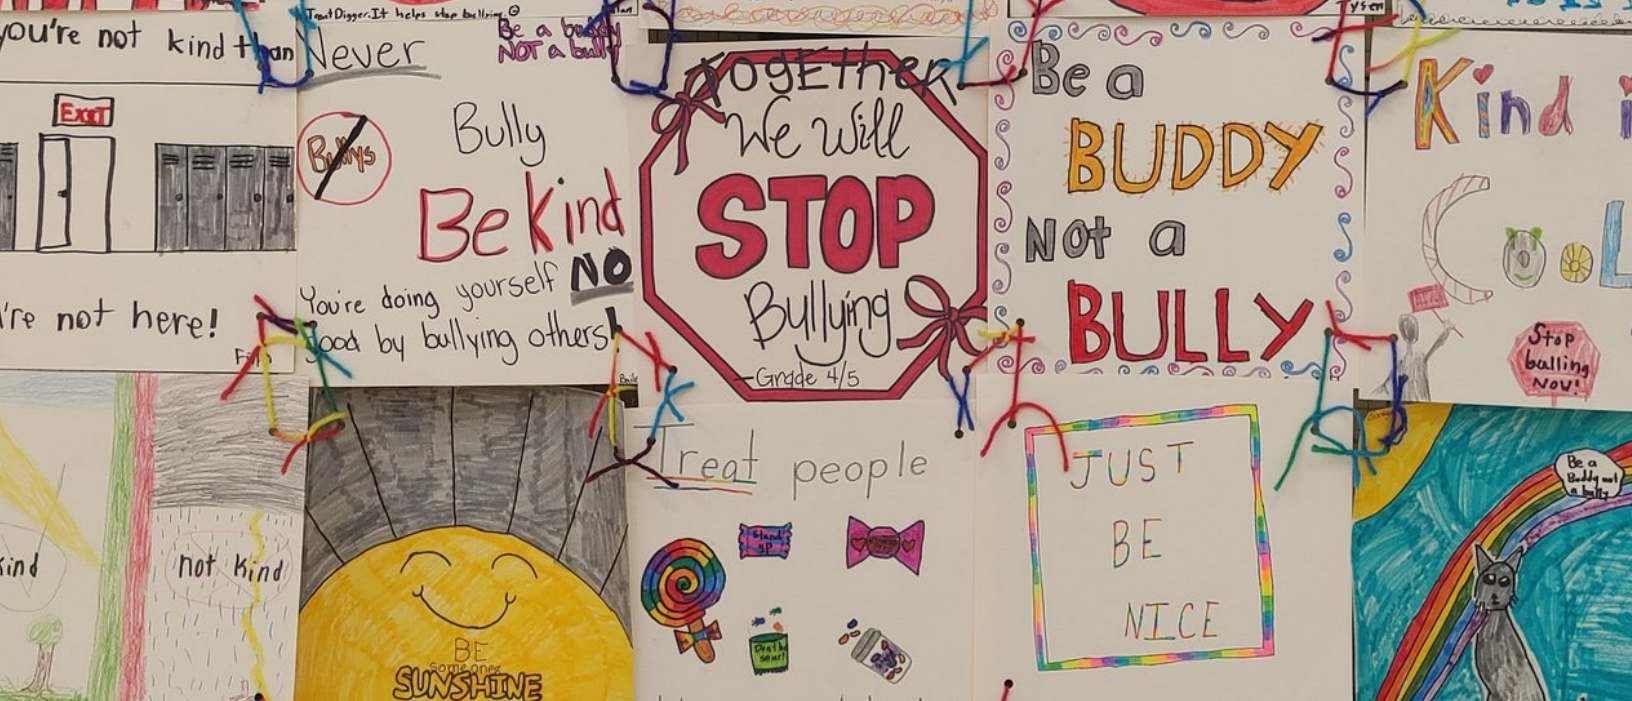 you're not kind than
EXIT
're not here!
TrentDigger. It helps stop bullying.
Be a buddy
NOT a bully
Never
Bullys
Bully
Be Kind
You're doing yourself NO
good by bullying others!
TogEther
We Will
STOP
Bullying
Grade 4/5
Tysen
Be a
BUDDY
Not a
BULLY
Kind i
CooL
Stop
bulling
NOW!
kind
not kind
BE
someones
SUNSHINE
Treat people
Stand
up
JUST
BE
NICE
Be a
Buddy not
a bully